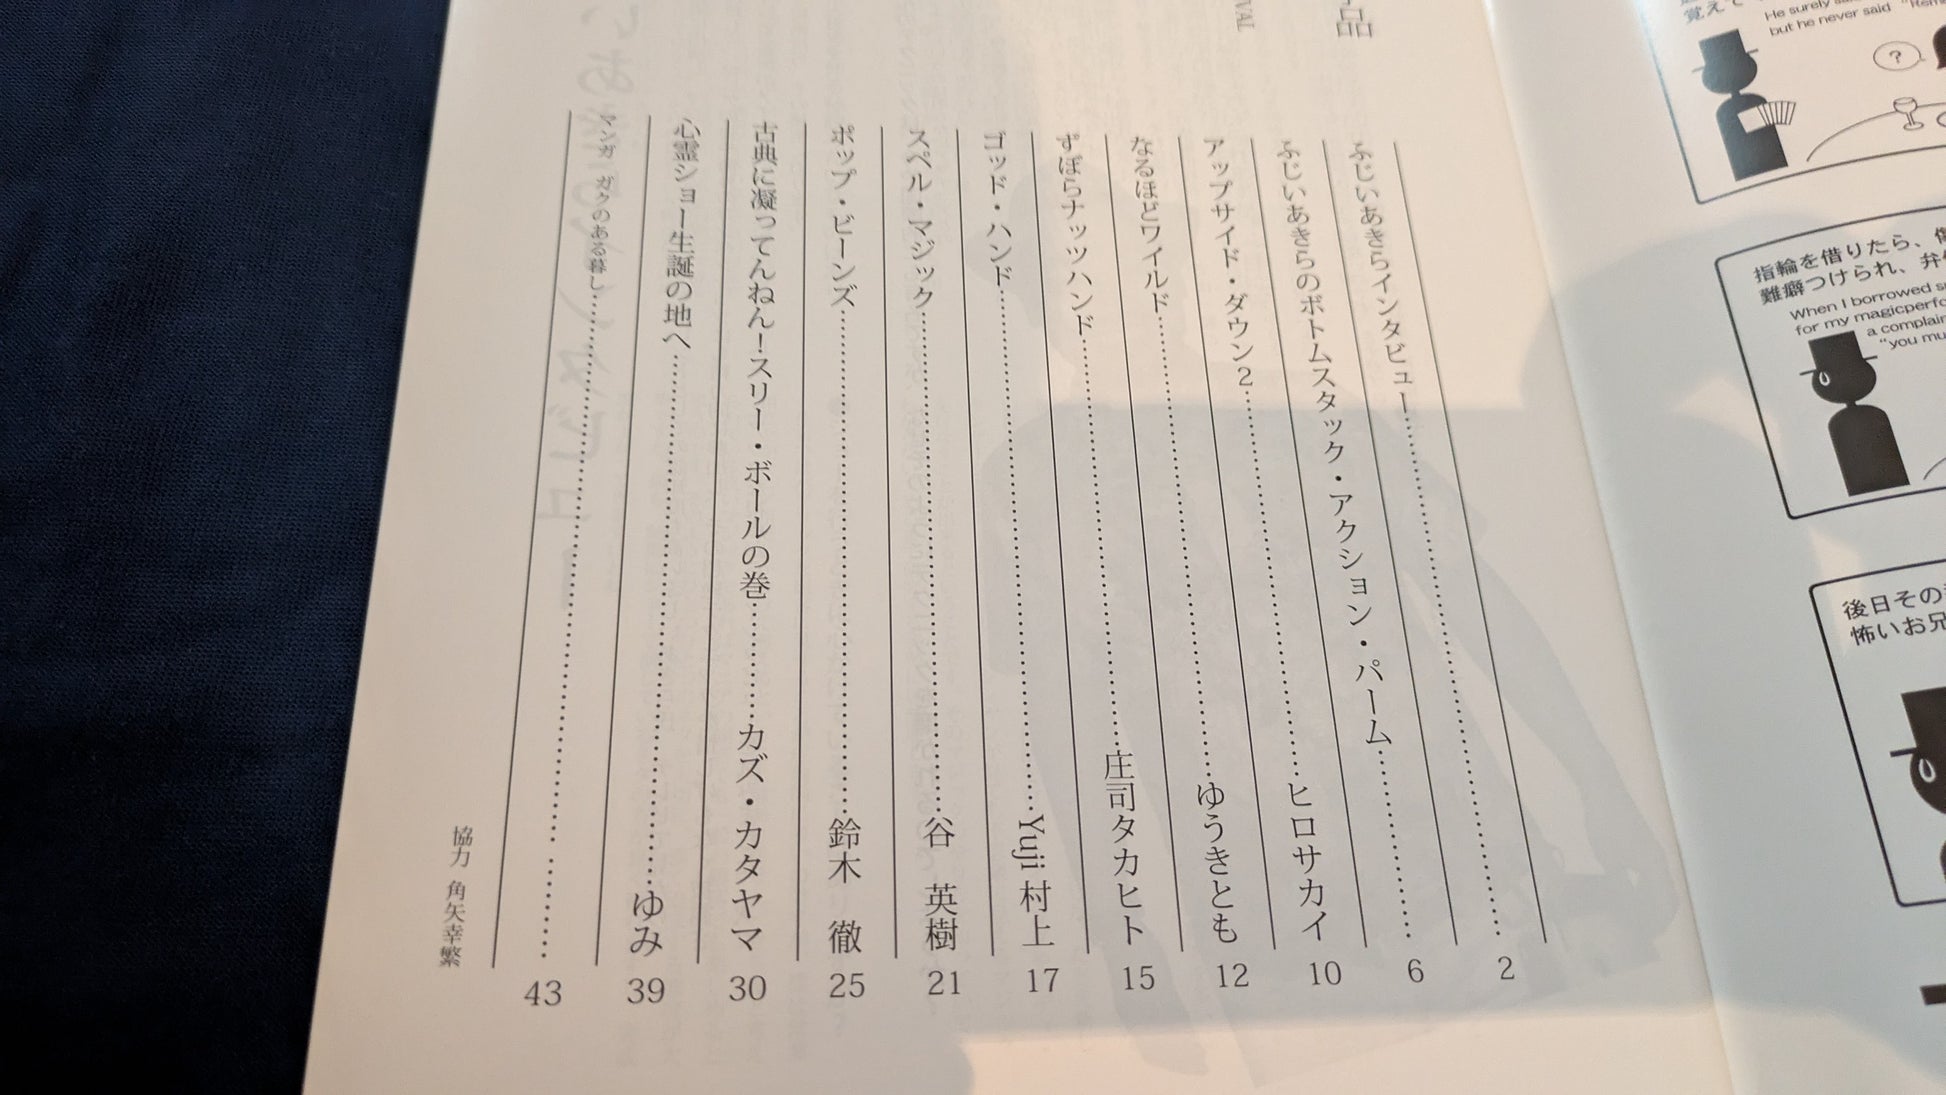 覚えて
He surely
but he never said
?
指輪を借りたら、
難癖つけられ、
When I borrowed
for my
a
“you
後日その
怖いお兄
品
VAL
ふじいあきらインタビュー……………………………… 2
ふじいあきらのボトムスタック・アクション・パーム…………… 6
アップサイド・ダウン2……………………………ヒロサカイ 10
なるほどワイルド……………………………ゆうきとも 12
ずぼらナッツハンド……………………………庄司タカヒト 15
ゴッド・ハンド……………………………Yuji 村上 17
スペル・マジック……………………………谷 英樹 21
ポップ・ビーンズ……………………………鈴木 徹 25
古典に凝ってんねん!スリー・ボールの巻…………カズ・カタヤマ 30
心霊ショー生誕の地へ……………………………ゆみ 39
マンガ ガクのある暮し……………………………… 43
協力 角矢幸繁